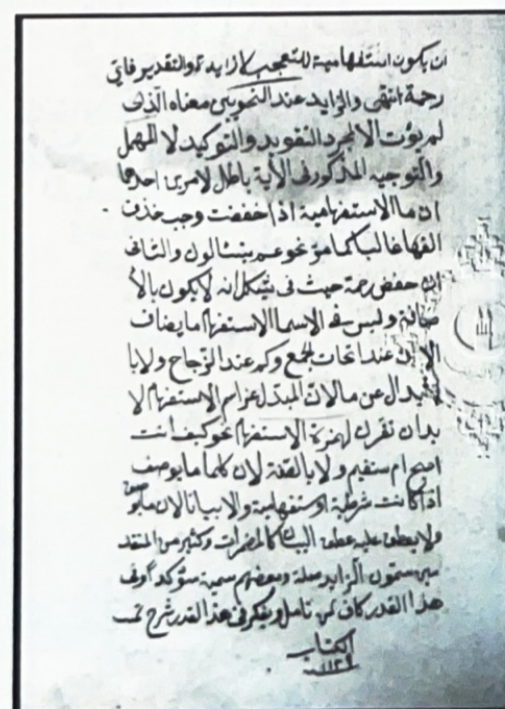 ان يكون استفهامية للتعجب لا زايدة والتقدير فاي
رحمة انتهى والزايد عند النحويين معناه الذي
لم يؤت الا لمجرد التقويه والتوكيد لا المهمل
والتوجيه المذكور في الآية باطل لامرين احدهما
ان ما الاستفهامية اذا خفضت وجب حذف
الفها غالبا كما مر نحو عم يتسائلون والثاني
ان خفض رحمة حيث في يشكل انه لا يكون بالا
ضافة وليس في الاسما الاستفهام ما يضاف
الا اي عند النحات الجمع وكم عند الزجاج ولا با
لابدال عن ما لان المبدل عن اسم الاستفهام لا
بد ان تقرن لهمزة الاستفهام نحو كيف انت
اصحيح ام سقيم ولا بالصفة لان كلما ما يوصف
اذا كانت شرطية او ستفهامية ولا بيانا لان ما يوصف
ولا يعطف عليه عطف البيان كالمضمرات وكثير من المتقد
مين يسمون الزايد صلة وبعضهم يسميه مؤكدا وفي
هذا القدر كاف لمن تامل ويفكر في هذا القدر شرح تمت
الكتاب